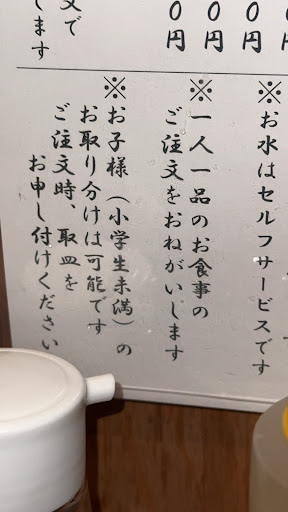 ０円
０円
０円
文で
します
※お水はセルフサービスです
※一人一品のお食事の
ご注文をおねがいします
※お子様（小学生未満）の
お取り分けは可能です
ご注文時、取皿を
お申し付けください